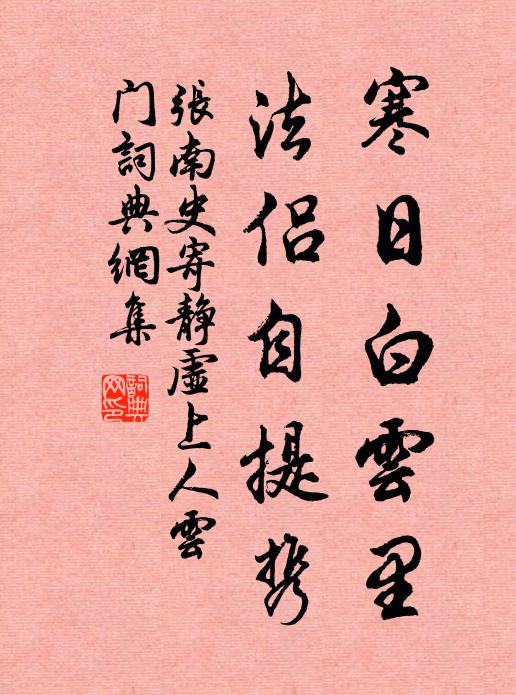 寒日白雲里
法侣自提携
張南史寄静虚上人雲
门詞典網集
詞典網印